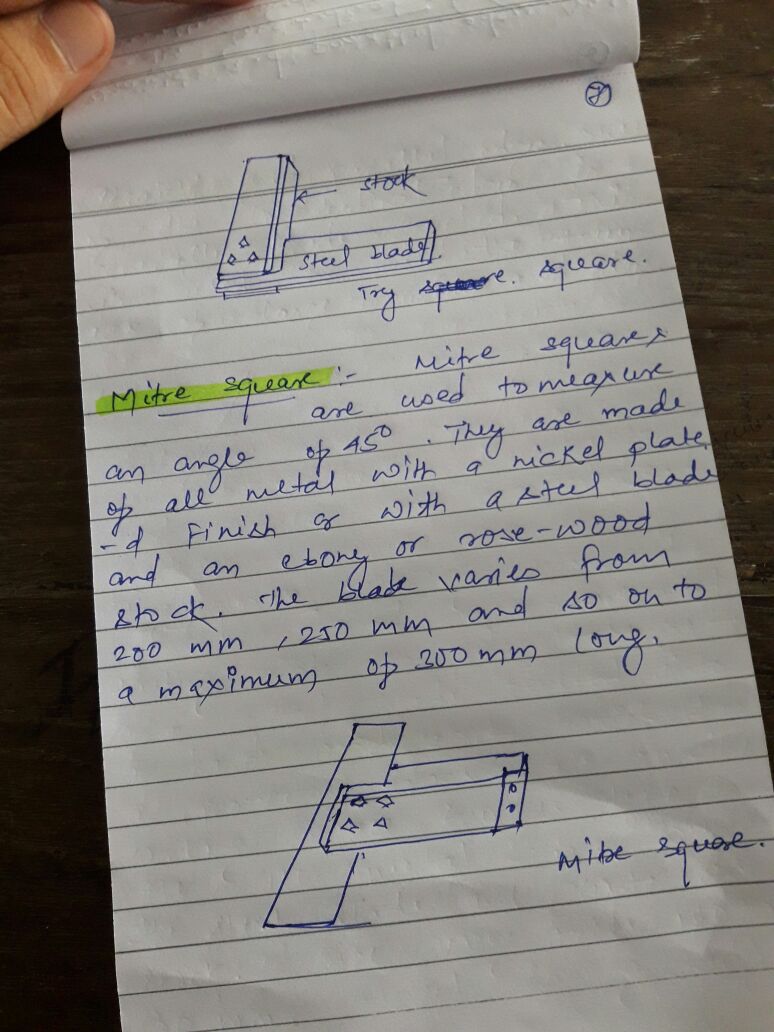 stock
steel blade.
Try square. square.
Mitre square :- Mitre squares
are used to measure
an angle of 45°. They are made
of all metal with a nickel plate
-d Finish or with a steel blade
and an ebony or rose-wood
stock. The blade varies from
200 mm, 250 mm and so on to
a maximum of 300 mm long.
Mitre square.